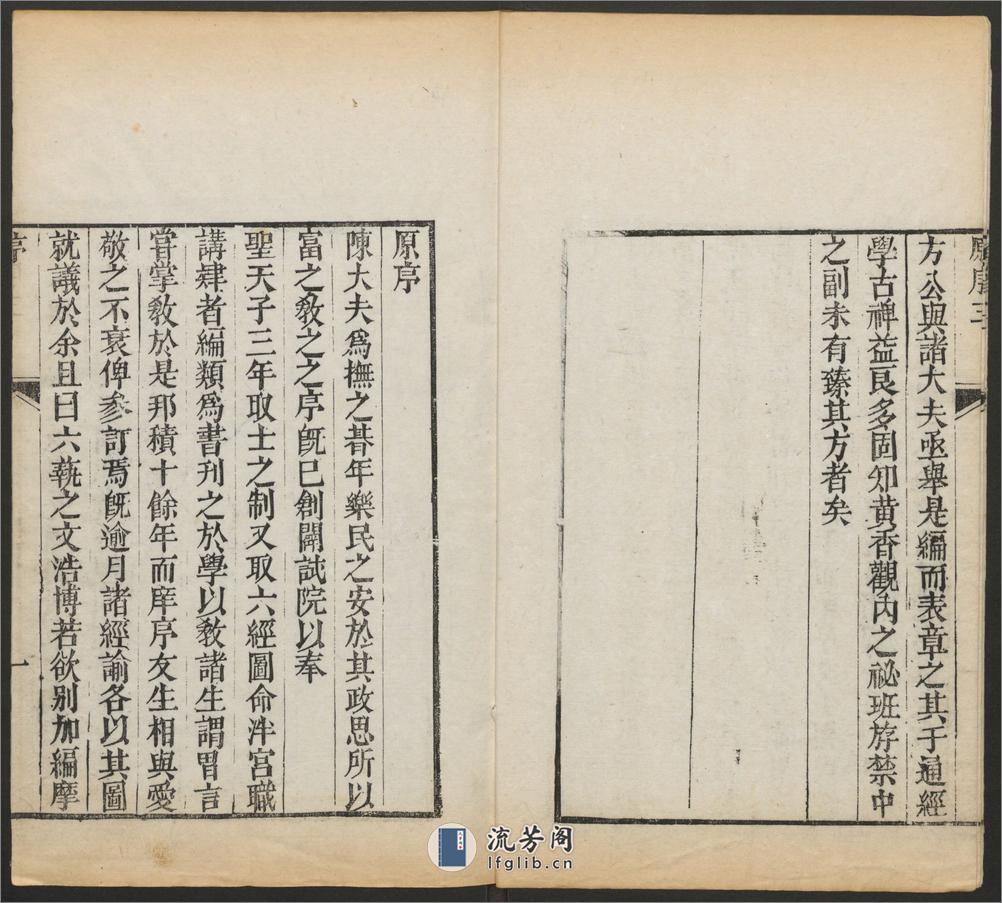 方公與諸大夫亟舉是編而表章之其于通經
學古裨益良多固知黄香觀內之祕班斿禁中
之副未有臻其方者矣
原序
陳大夫爲撫之朞年樂民之安於其政思所以
富之敎之之序旣已創闢試院以奉
聖天子三年取士之制又取六經圖命泮宮職
講肄者編類爲書刊之於學以敎諸生謂冒言
嘗掌敎於是邦積十餘年而庠序友生相與愛
敬之不衰俾參訂焉旣逾月諸經諭各以其圖
就議於余且曰六蓺之文浩博若欲別加編摩
序
一
流芳阁
lfglib.cn